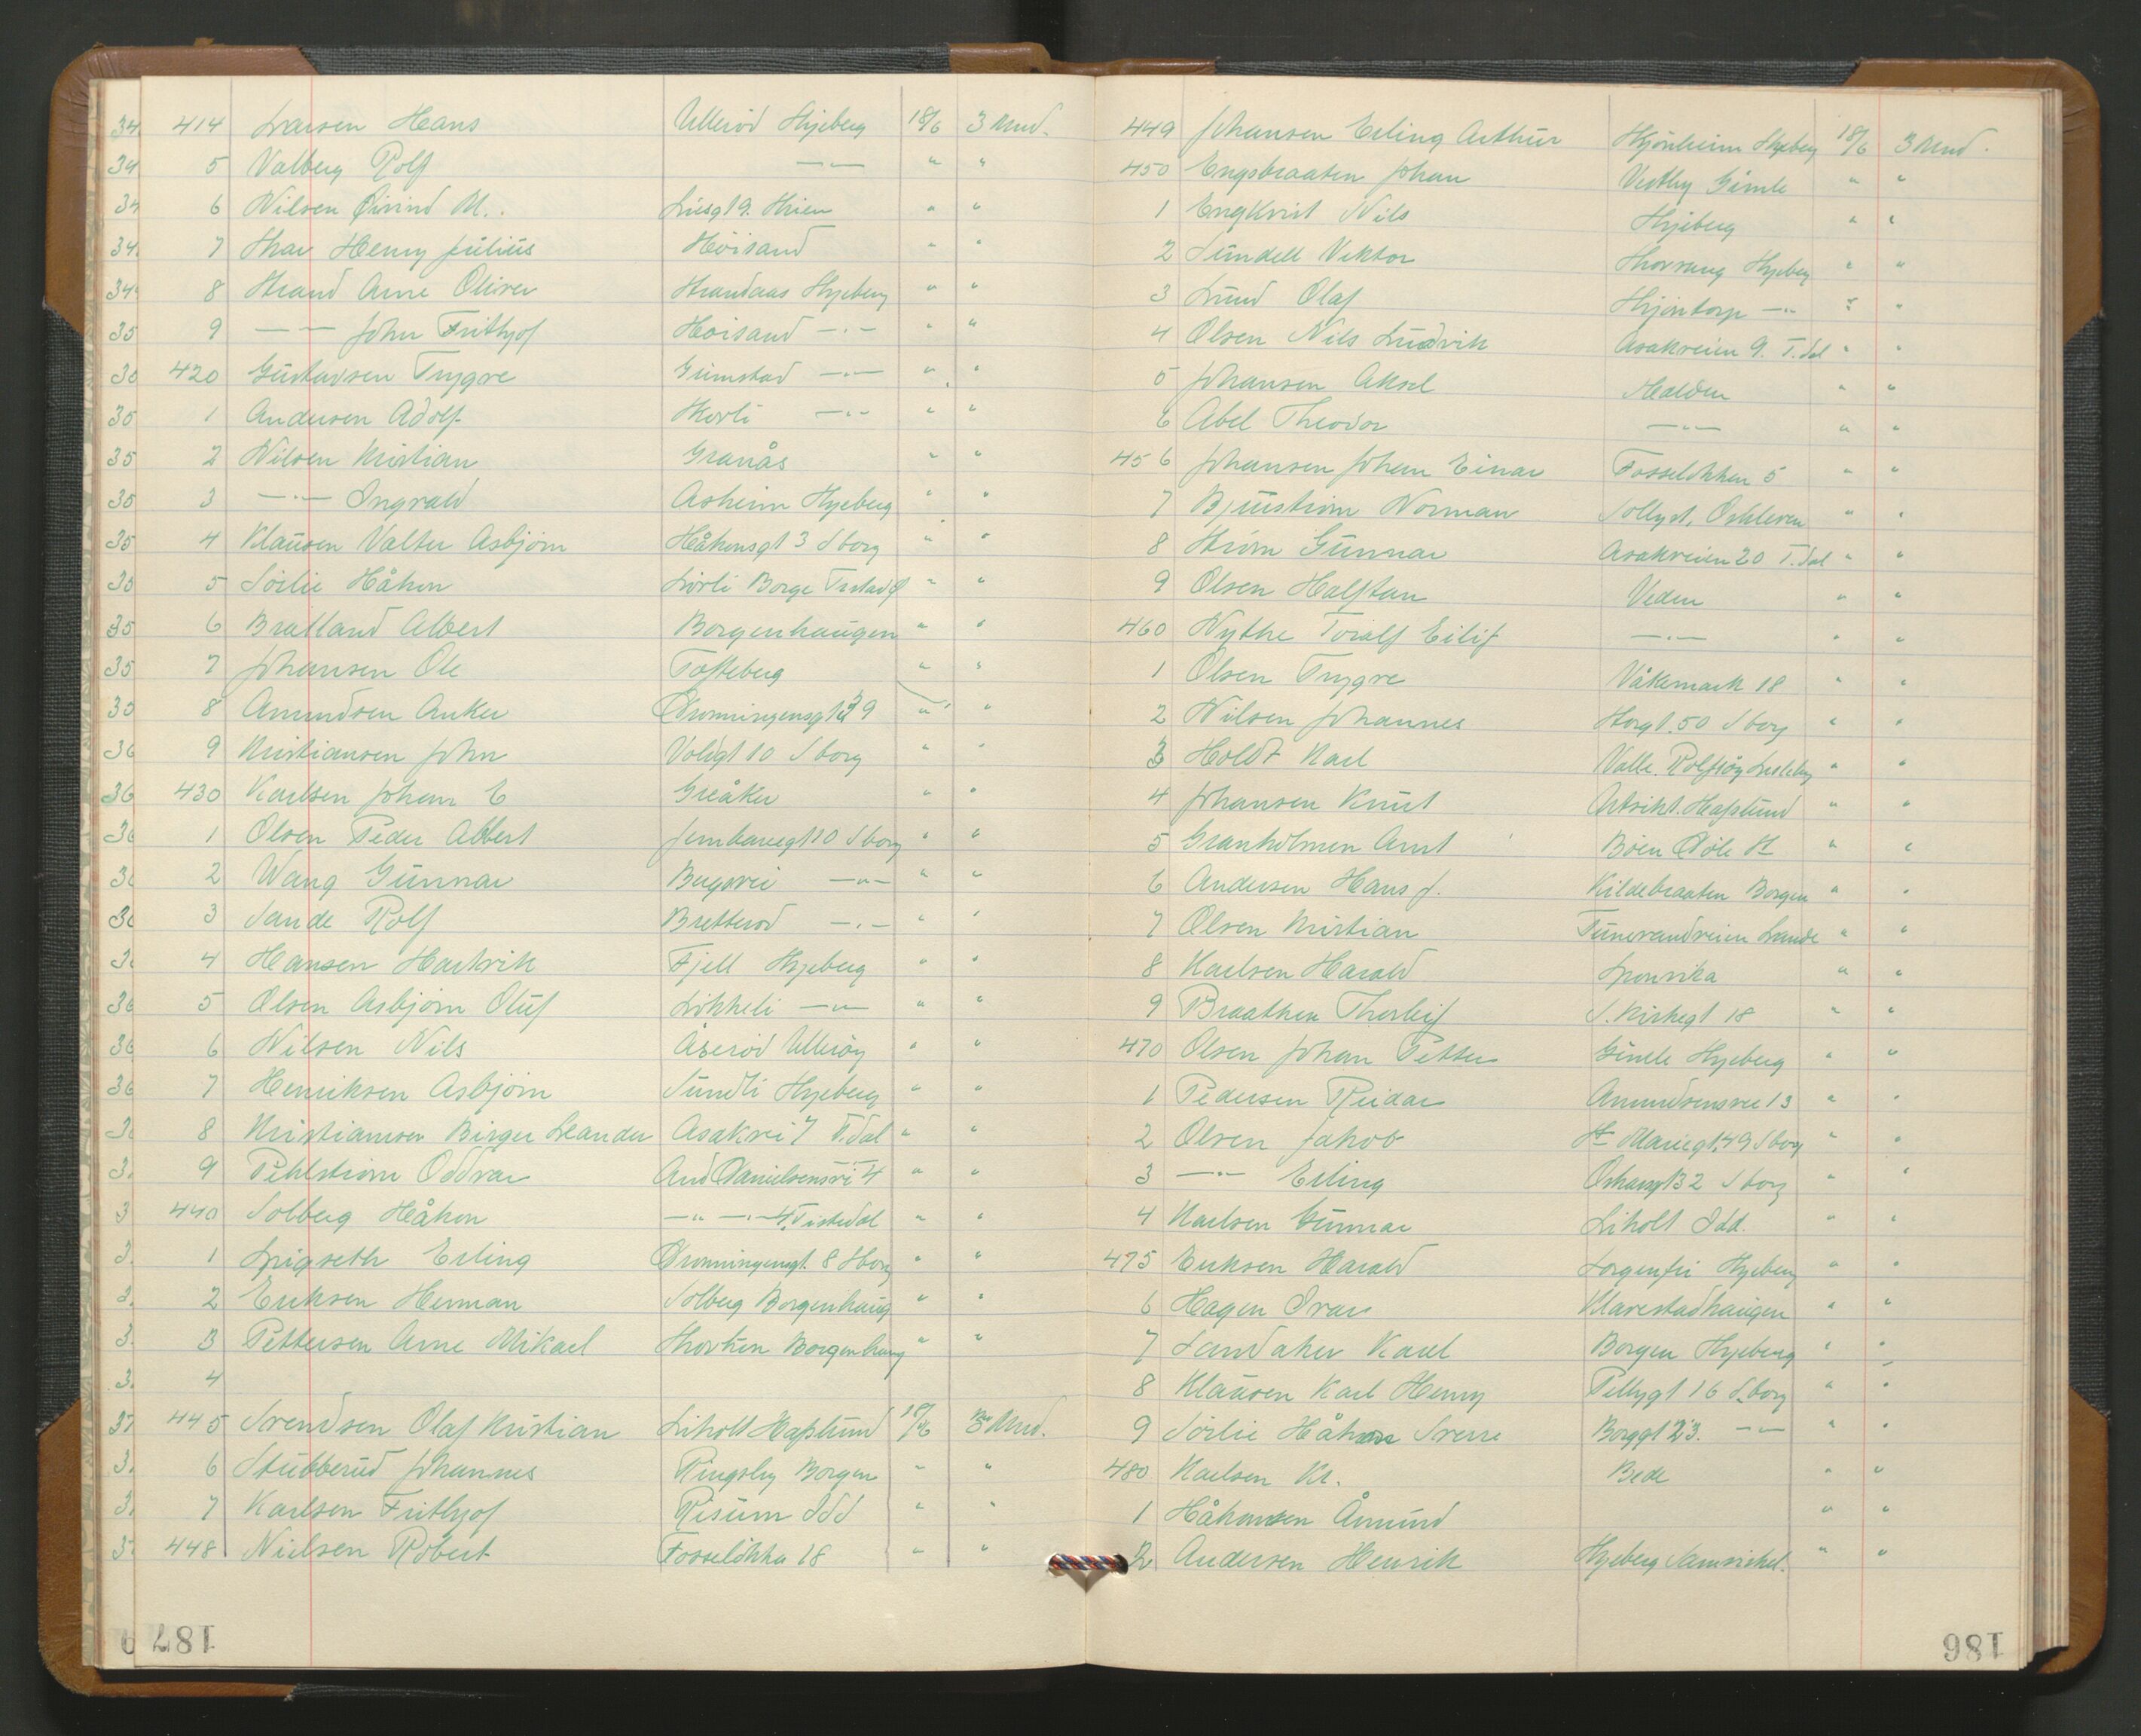 414 Larsen Hans Ullerød Skjeberg 18/6 3 Mnd.
5 Valberg Rolf —"— " "
6 Nilsen Øivind M. Liesgt 9. " "
7 Skar Henry Julius Höisand " "
8 Strand Arne Oliver Strandaas Skjeberg " "
9 —"— John Frithjof Höisand —"— " "
420 Gustavsen Trygve Grimstad —"— " "
1 Andersen Adolf Skorli —"— " "
2 Nilsen Kristian Granås " "
3 —"— Ingvald Åsheim Skjeberg " "
4 Klausen Valter Asbjørn Håkonsgt 3 S borg " "
5 Sörlie Håkon Lövli Borge " "
6 Bratland Albert Borgenhaugen " "
7 Johansen Ole Tofteberg " "
8 Amundsen Anker Dronningensgt 39 " "
9 Kristiansen John Voldgt 10 S borg " "
430 Karlsen Johan E Greåker " "
1 Olsen Peder Albert Jernbanegt 10 S borg " "
2 Wang Gunnar —"— " "
3 Sande Rolf Bretterød —"— " "
4 Hansen Hartvik Fjell Skjeberg " "
5 Olsen Asbjørn Oluf Likkeli —"— " "
6 Nilsen Nils Åserød Ullerøy " "
7 Henriksen Asbjørn Sundli Skjeberg " "
8 Kristiansen Birger Leander Asakvei 7 T.dal " "
9 Pihlstrøm Oddvar And Danielsensvei 4 " "
440 Solberg Håkon —"— —"— 4, Tistedal " "
1 Spigseth Erling Dronningensgt. 8 S borg " "
2 Eriksen Herman Solberg Borgenhaug " "
3 Pettersen Arne Mikael Skorten Borgenhaug " "
4
445 Svendsen Olaf Kristian Liholt Hafslund 18/6 3 Mnd.
6 Stubberud Johannes Ringsby Borgen " "
7 Karlsen Frithjof Risum Idd " "
448 Nielsen Robert Fosseløkka 18 " "
187
449 Johansen Erling Arthur Skjønheim Skjeberg 18/6 3 Mnd.
450 Engebraaten Johan Vestby Gimle " "
1 Engkvist Nils Skjeberg " "
2 Sundell Viktor Skjeberg " "
3 Lund Olaf Skjøntorp —"— " "
4 Olsen Nils Ludvik Asakveien 9. T.dal " "
5 Johansen Aksel Halden " "
6 Abel Theodor —"— " "
456 Johansen Johan Einar Fosseløkken 5 " "
7 Bjurstrøm Norman Sollyst, Oskleven " "
8 Strøm Gunnar Asakveien 20 T.dal " "
9 Olsen Halfstan Veden " "
460 Nythe Toralf Eilif —"— " "
1 Olsen Trygve Våkemark 18 " "
2 Nilsen Johannes Storgt. 50 S borg " "
3 Holdt Karl Valle. Rolfsøy " "
4 Johansen Knut Utsikt. Hafslund " "
5 Granholmen Arnt Böen Döle St " "
6 Andersen Hans J. Kildebraaten Borgen " "
7 Olsen Kristian Tunevandveien Lande " "
8 Karlsen Harald Sponvika " "
9 Braathen Thorleif S. Kirkegt 18 " "
470 Olsen Johan Petter Gimle Skjeberg " "
1 Pedersen Reidar Amundsensvei 13 " "
2 Olsen Jakob St Mariegt. 49 S borg " "
3 —"— Erling Oskarsgt 32 S borg " "
4 Karlsen Gunnar Liholt Idd. " "
475 Eriksen Harald Sorgenfri Skjeberg " "
6 Hagen Ivar Klavestadhaugen " "
7 Sandaker Karl Borgen Skjeberg " "
8 Klausen Karl Henry Pellygt 16 S.borg " "
9 Sörlie Håkon Sverre Borggt 23. —"— " "
480 Karlsen Kr. Bede " "
1 Håkonsen Åmund " "
2 Andersen Henrik Skjeberg Samvirkel. " "
186